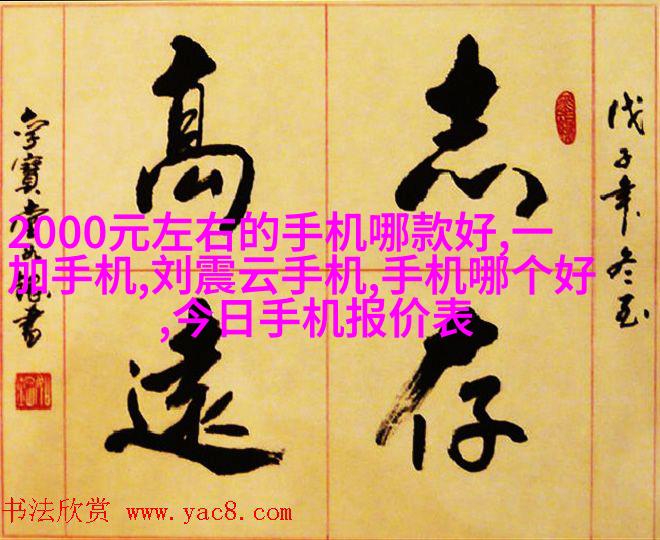 志存
高遠
戊子年冬至
2000元左右的手机哪款好,一
加手机,刘震云手机,手机哪个好
,今日手机报价表
书法欣赏 www.yac8.com